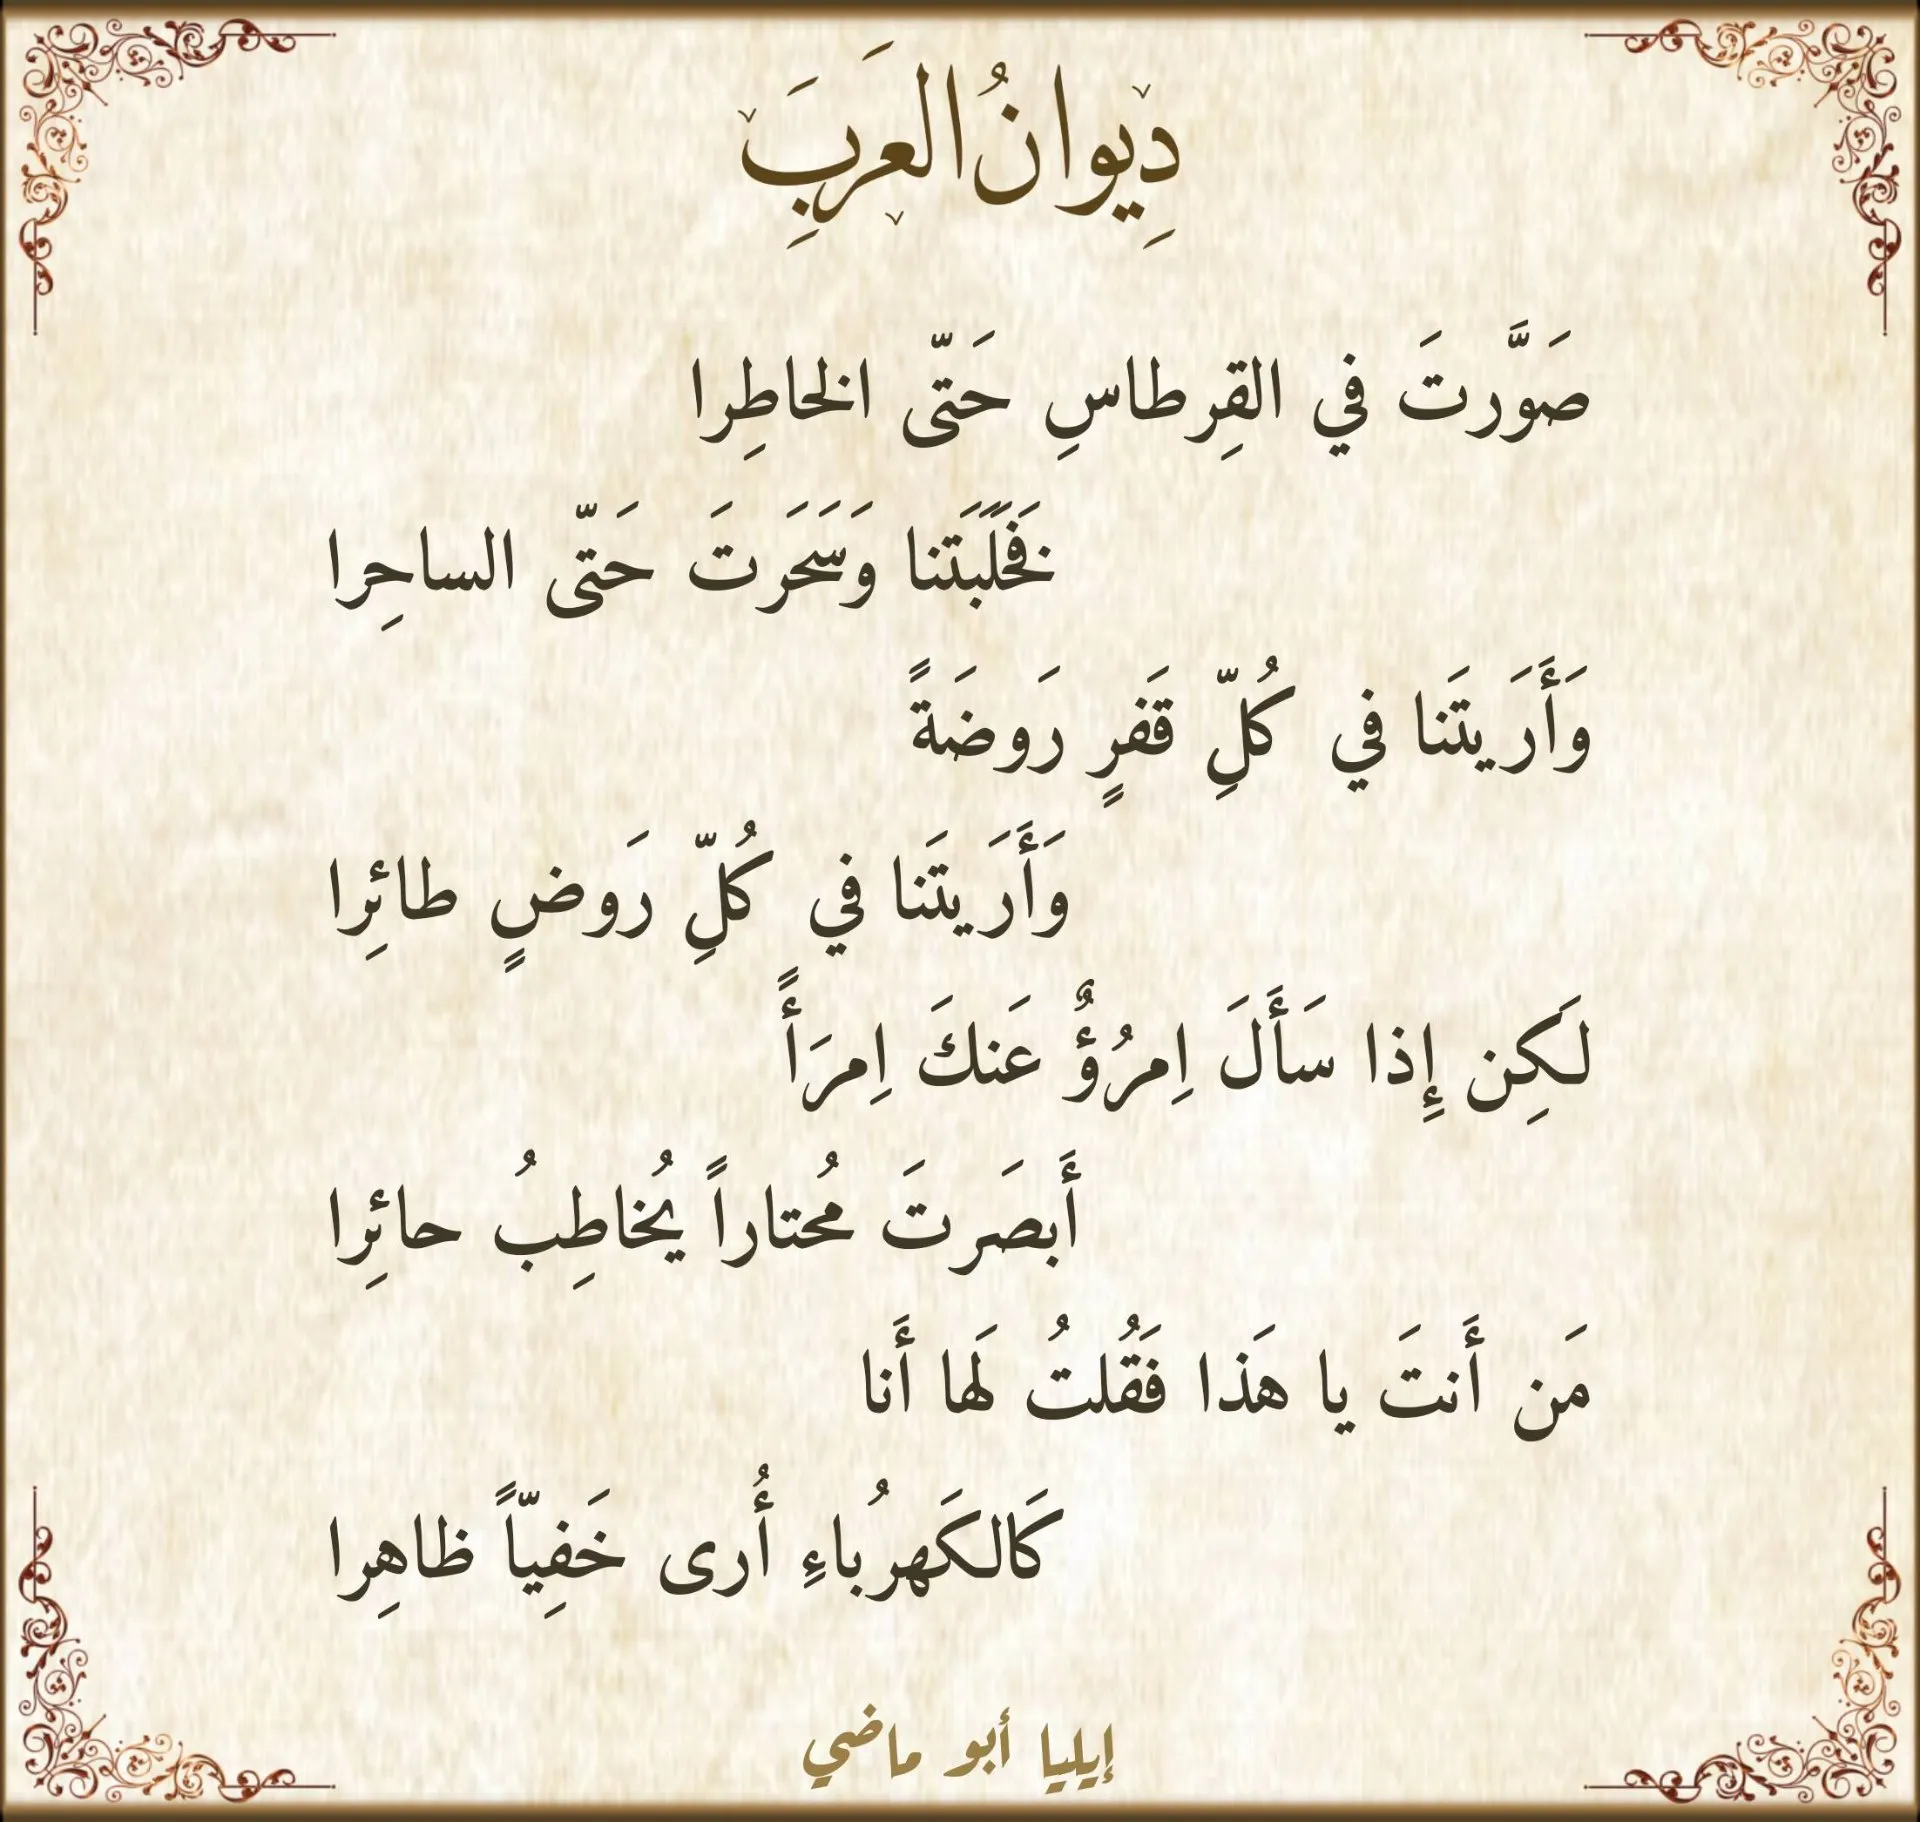 دِيوانُ العَربَِ
صَوَّرتَ في القِرطاسِ حَتّى الخاطِرا
فَخَلَبتَنا وَسَحَرتَ حَتّى الساحِرا
وَأَرَيتَنا في كُلِّ قَفرٍ رَوضَةً
وَأَرَيتَنا في كُلِّ رَوضٍ طائِرا
لَكِن إِذا سَأَلَ اِمرُؤٌ عَنكَ اِمرَأً
أَبصَرتَ مُحتاراً يُخاطِبُ حائِرا
مَن أَنتَ يا هَذا فَقُلتُ لَها أَنا
كَالكَهرُباءِ أُرى خَفِيّاً ظاهِرا
إيليا أبو ماضي